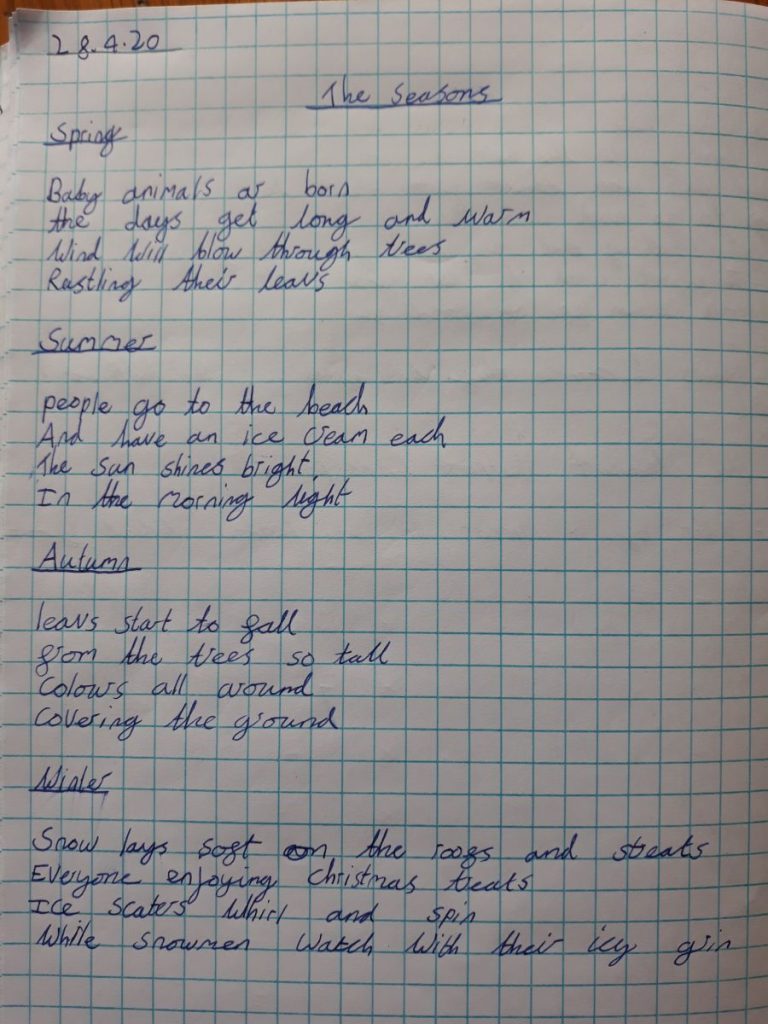 28.4.20
The Seasons
Spring
Baby animals ar born
the days get long and warm
Wind Will blow through trees
Rustling their leavs
Summer
people go to the beach
And have an ice cream each
The Sun shines bright
In the morning light
Autumn
leavs start to fall
from the trees so tall
Colours all around
Covering the ground
Winter
Snow lays soft on the roofs and streats
Everyone enjoying Christmas treats
Ice scaters Whirl and spin
While Snowmen Watch With their icy grin